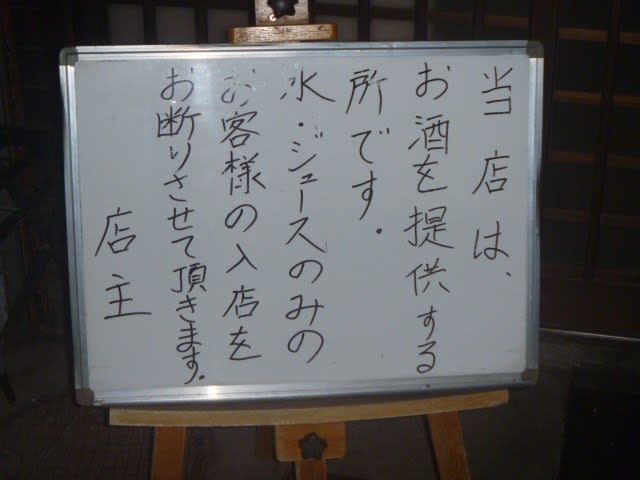 当店は、
お酒を提供する
所です。
水・ジュースのみの
お客様の入店を
お断りさせて頂きます。
店主